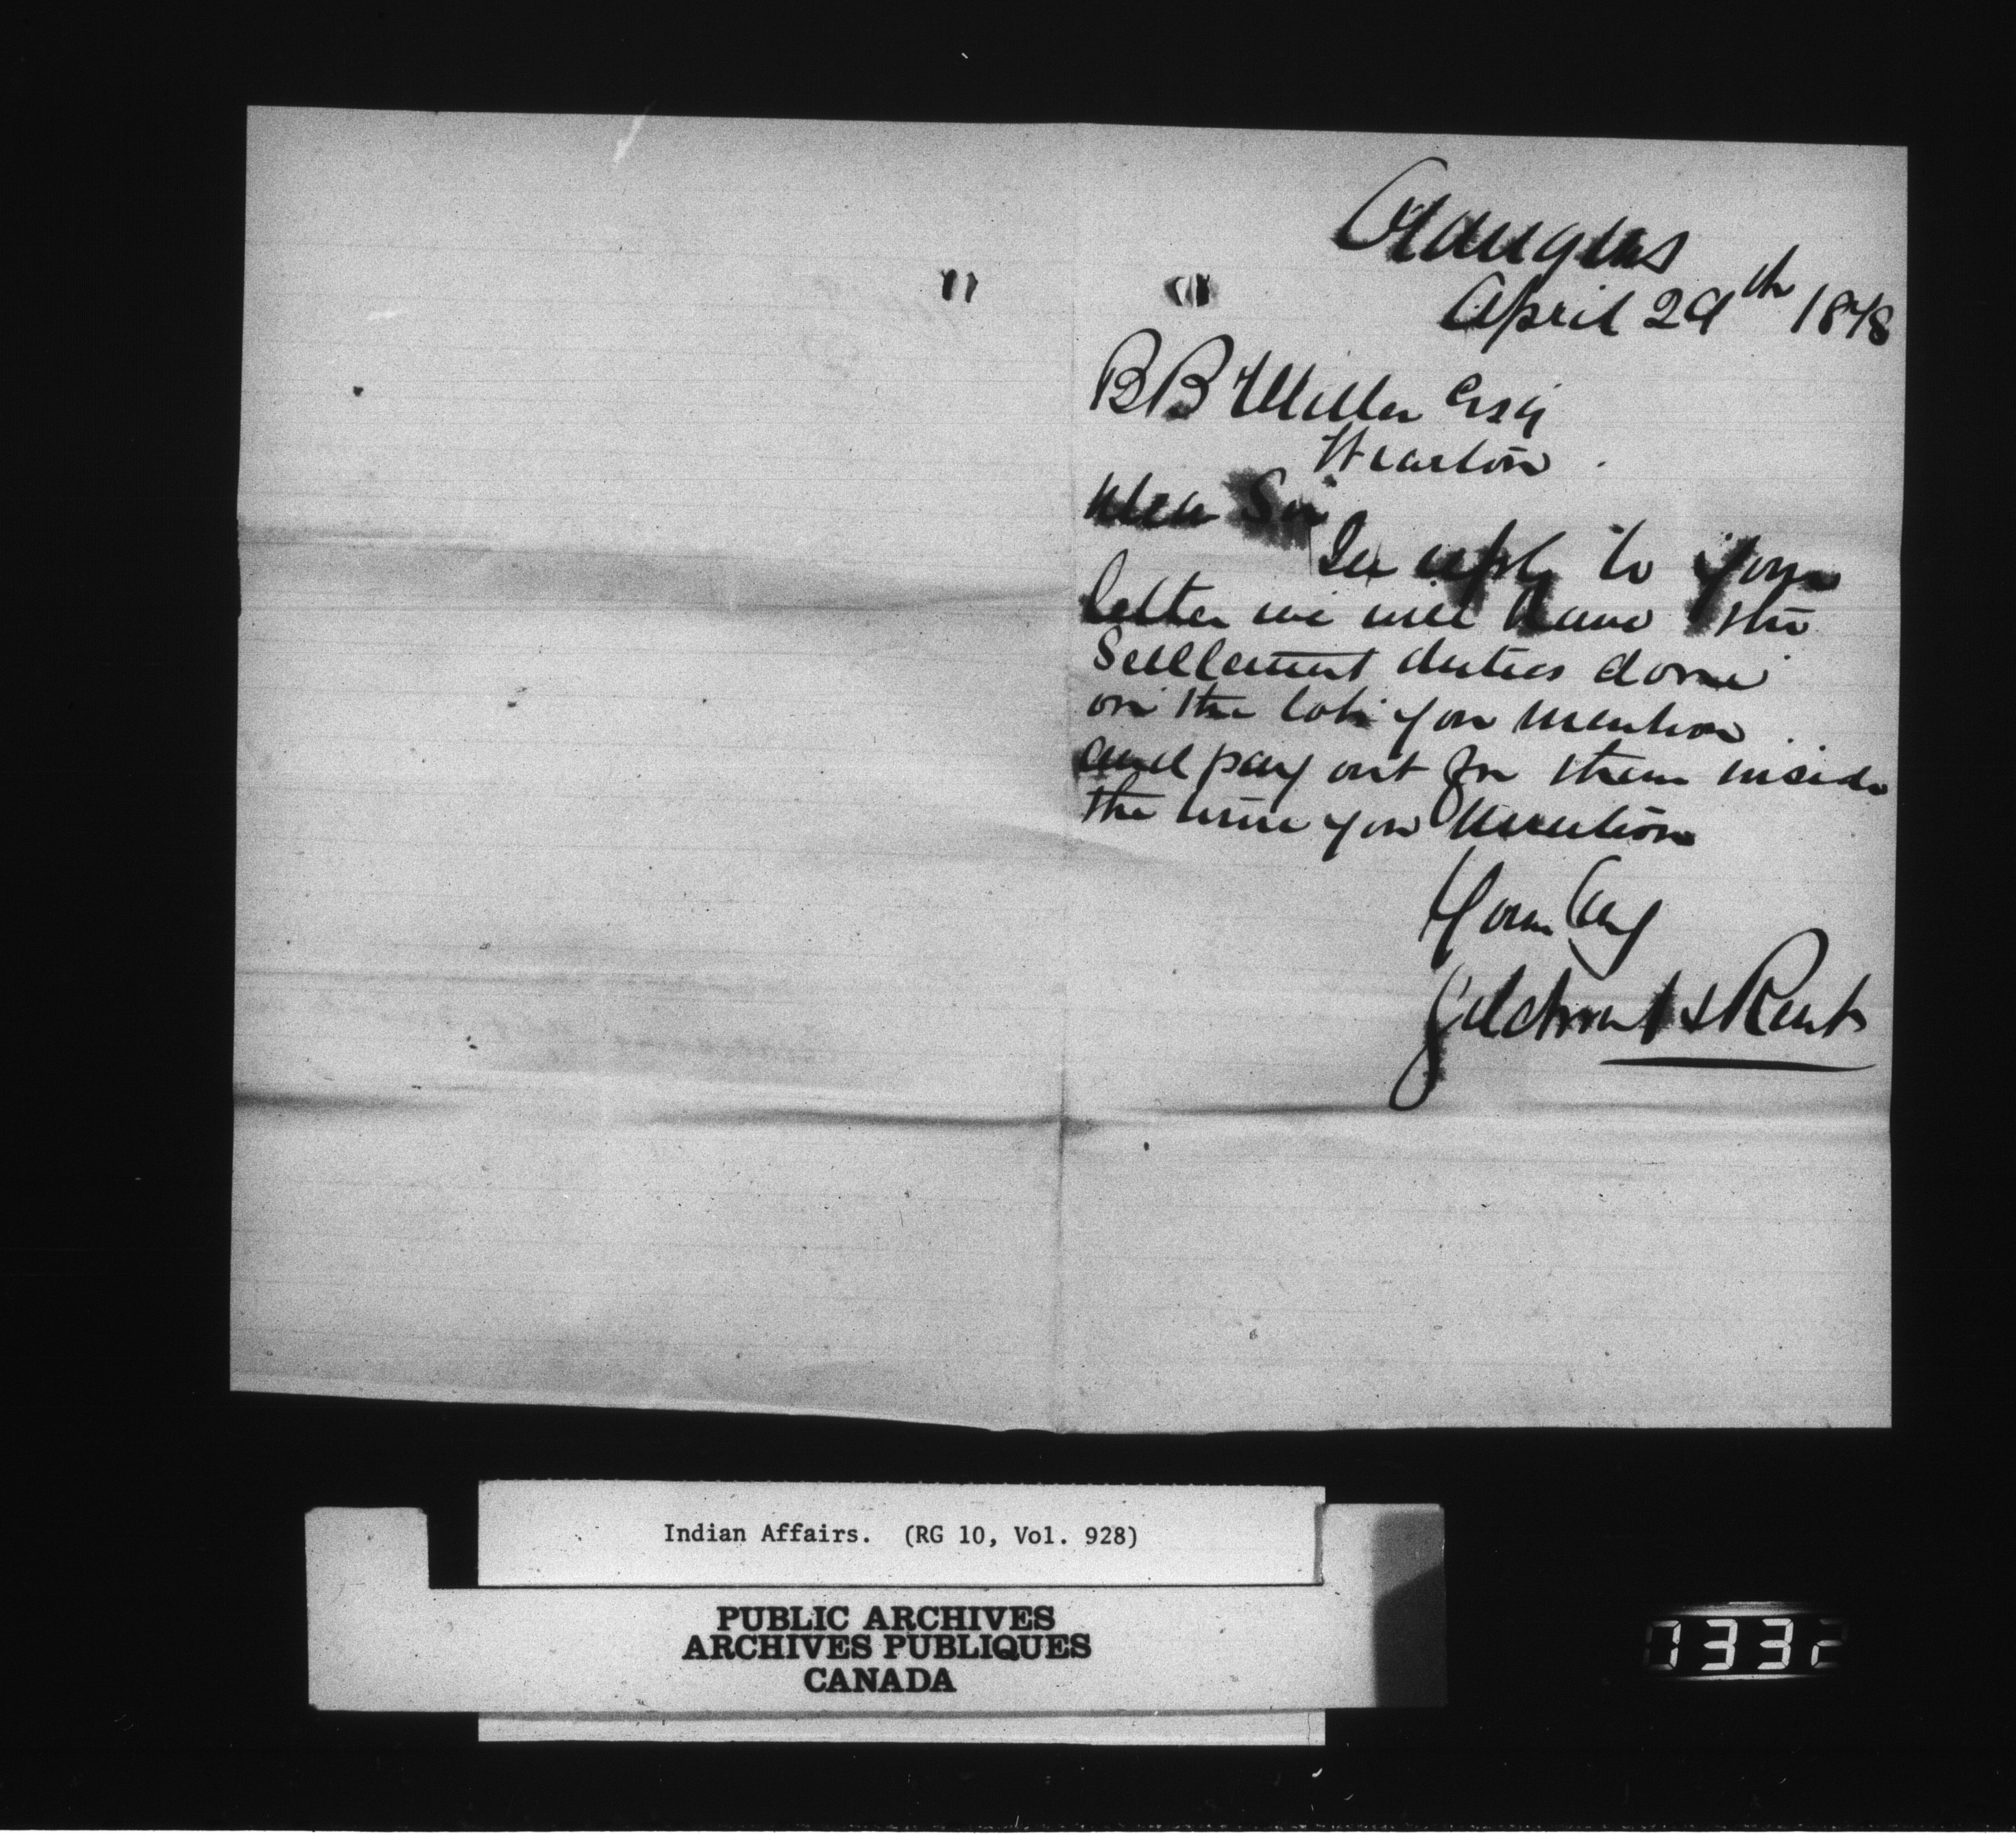 April 29th 1878
B B Miller Esq
Wiarton
Dear Sir
In reply to your
letter we will have the
Settlement duties done
on the lots you mention
and pay out for them inside
the time you mention
Yours truly
Gilchrist & Kent
Indian Affairs. (RG 10, Vol. 928)
PUBLIC ARCHIVES
ARCHIVES PUBLIQUES
CANADA
1332